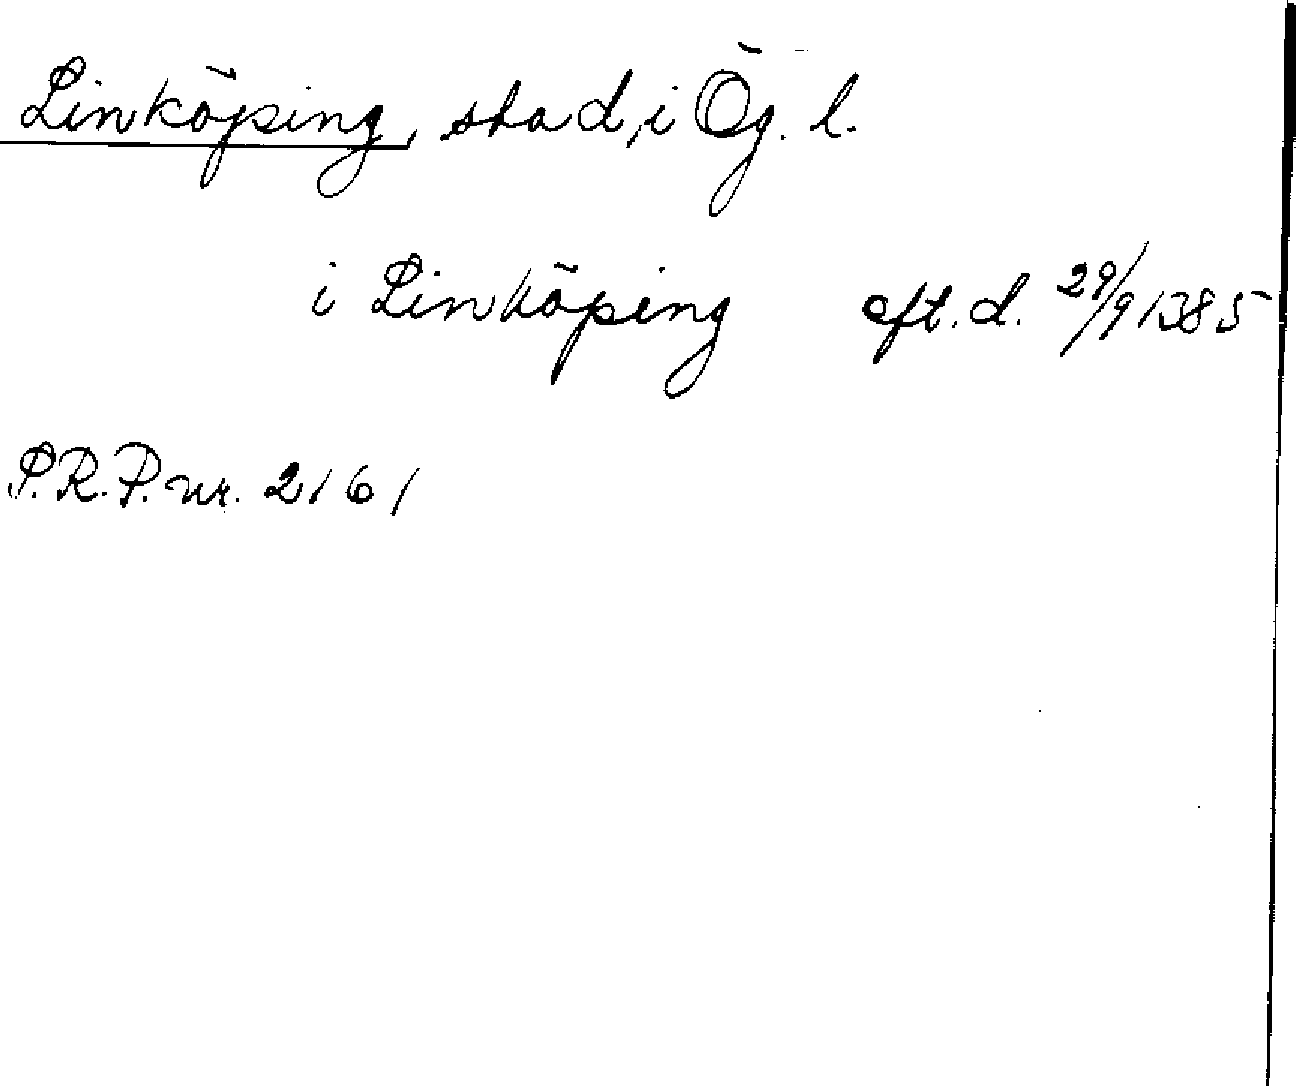 Linköping, stad, i Ög. l.
i Linköping eft. d. 29/9 1385
P.R.P. nr. 2161